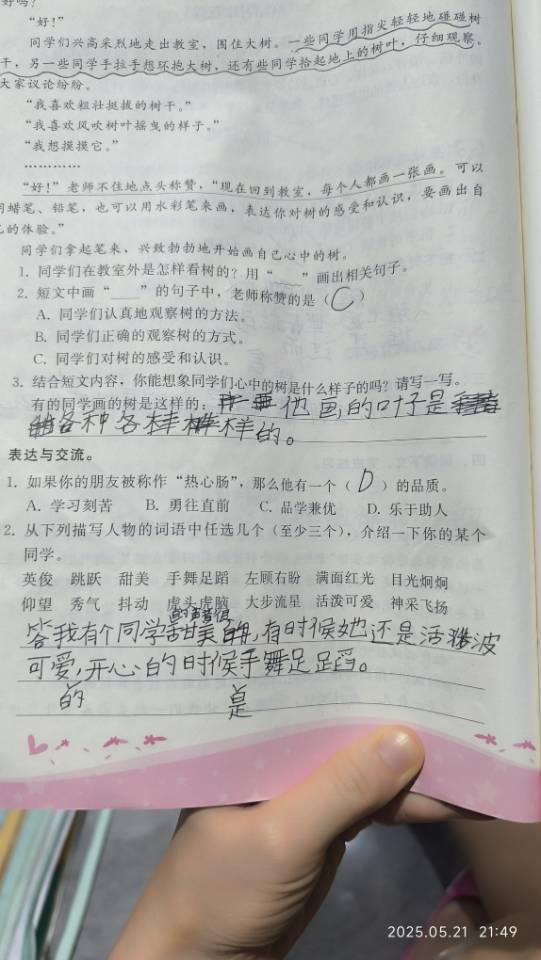 好吗？
“好！”
同学们兴高采烈地走出教室，围住大树。一些同学用指尖轻轻地碰碰树
干，另一些同学手拉手想环抱大树，还有些同学拾起地上的树叶，仔细观察。
大家议论纷纷。
“我喜欢粗壮挺拔的树干。”
“我喜欢风吹树叶摇曳的样子。”
“我想摸摸它。”
…………
“好！”老师不住地点头称赞，“现在回到教室，每个人都画一张画。可以
用蜡笔、铅笔，也可以用水彩笔来画，表达你对树的感受和认识，要画出自
己的体验。”
同学们拿起笔来，兴致勃勃地开始画自己心中的树。
1. 同学们在教室外是怎样看树的？用“﹏﹏”画出相关句子。
2. 短文中画“____”的句子中，老师称赞的是（C）
A. 同学们认真地观察树的方法。
B. 同学们正确的观察树的方式。
C. 同学们对树的感受和认识。
3. 结合短文内容，你能想象同学们心中的树是什么样子的吗？请写一写。
有的同学画的树是这样的：他画的叶子是
各种各样的。
表达与交流。
1. 如果你的朋友被称作“热心肠”，那么他有一个（D）的品质。
A. 学习刻苦 B. 勇往直前 C. 品学兼优 D. 乐于助人
2. 从下列描写人物的词语中任选几个（至少三个），介绍一下你的某个
同学。
英俊 跳跃 甜美 手舞足蹈 左顾右盼 满面红光 目光炯炯
仰望 秀气 抖动 虎头虎脑 大步流星 活泼可爱 神采飞扬
答我有个同学甜美，有时候她还是活波
可爱，开心的时候手舞足蹈。
的 是
2025.05.21 21:49